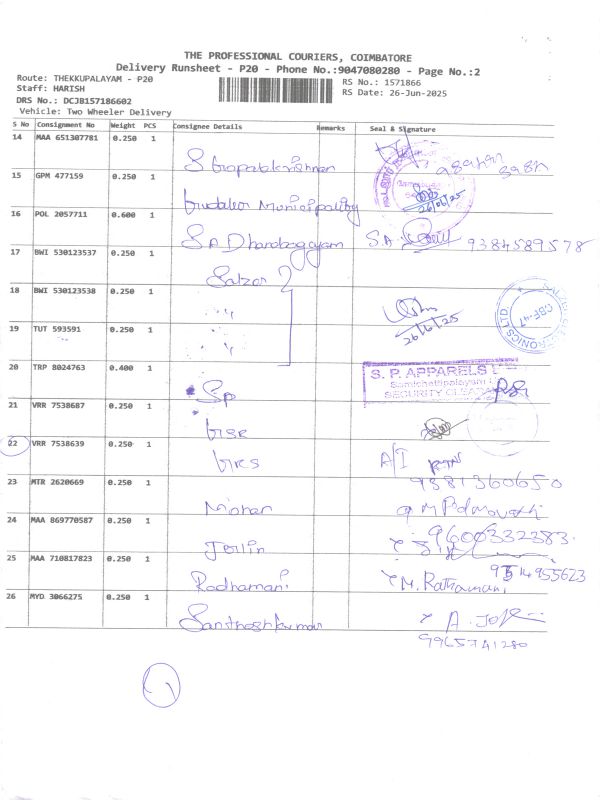 THE PROFESSIONAL COURIERS, COIMBATORE
Delivery Runsheet - P20 - Phone No.:9047080280 - Page No.:2
Route: THEKKUPALAYAM - P20
RS No.: 1571866
Staff: HARISH
RS Date: 26-Jun-2025
DRS No.: DCJB157186602
Vehicle: Two Wheeler Delivery
S No Consignment No Weight PCS Consignee Details Remarks Seal & Signature
14 MAA 651307781 0.250 1
S Gopalakrishnan
15 GPM 477159 0.250 1
Gudalur Municipality 26/06/25
16 POL 2057711 0.600 1
S.A Dhanabagyam S.A. 9384589578
17 BWI 530123537 0.250 1
Salzer
18 BWI 530123538 0.250 1
〃 26/6/25
19 TUT 593591 0.250 1
〃
20 TRP 8024763 0.400 1
S. P. APPARELS
SECURITY
Sp
21 VRR 7538687 0.250 1
22 VRR 7538639 0.250 1
A/I RTN
23 MTR 2620669 0.250 1
9381360650
Mohan
24 MAA 869770587 0.250 1
9600332383
Jerlin
25 MAA 710817823 0.250 1
Radhamani M. Rathamani
26 MYD 3066275 0.250 1
Santhoshkumar
9965741280